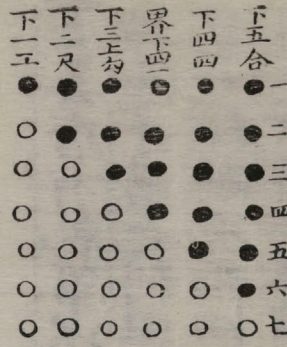 下五合
下四四
下四一
下三上勾
下二尺
下一工
一
二
三
四
五
六
七